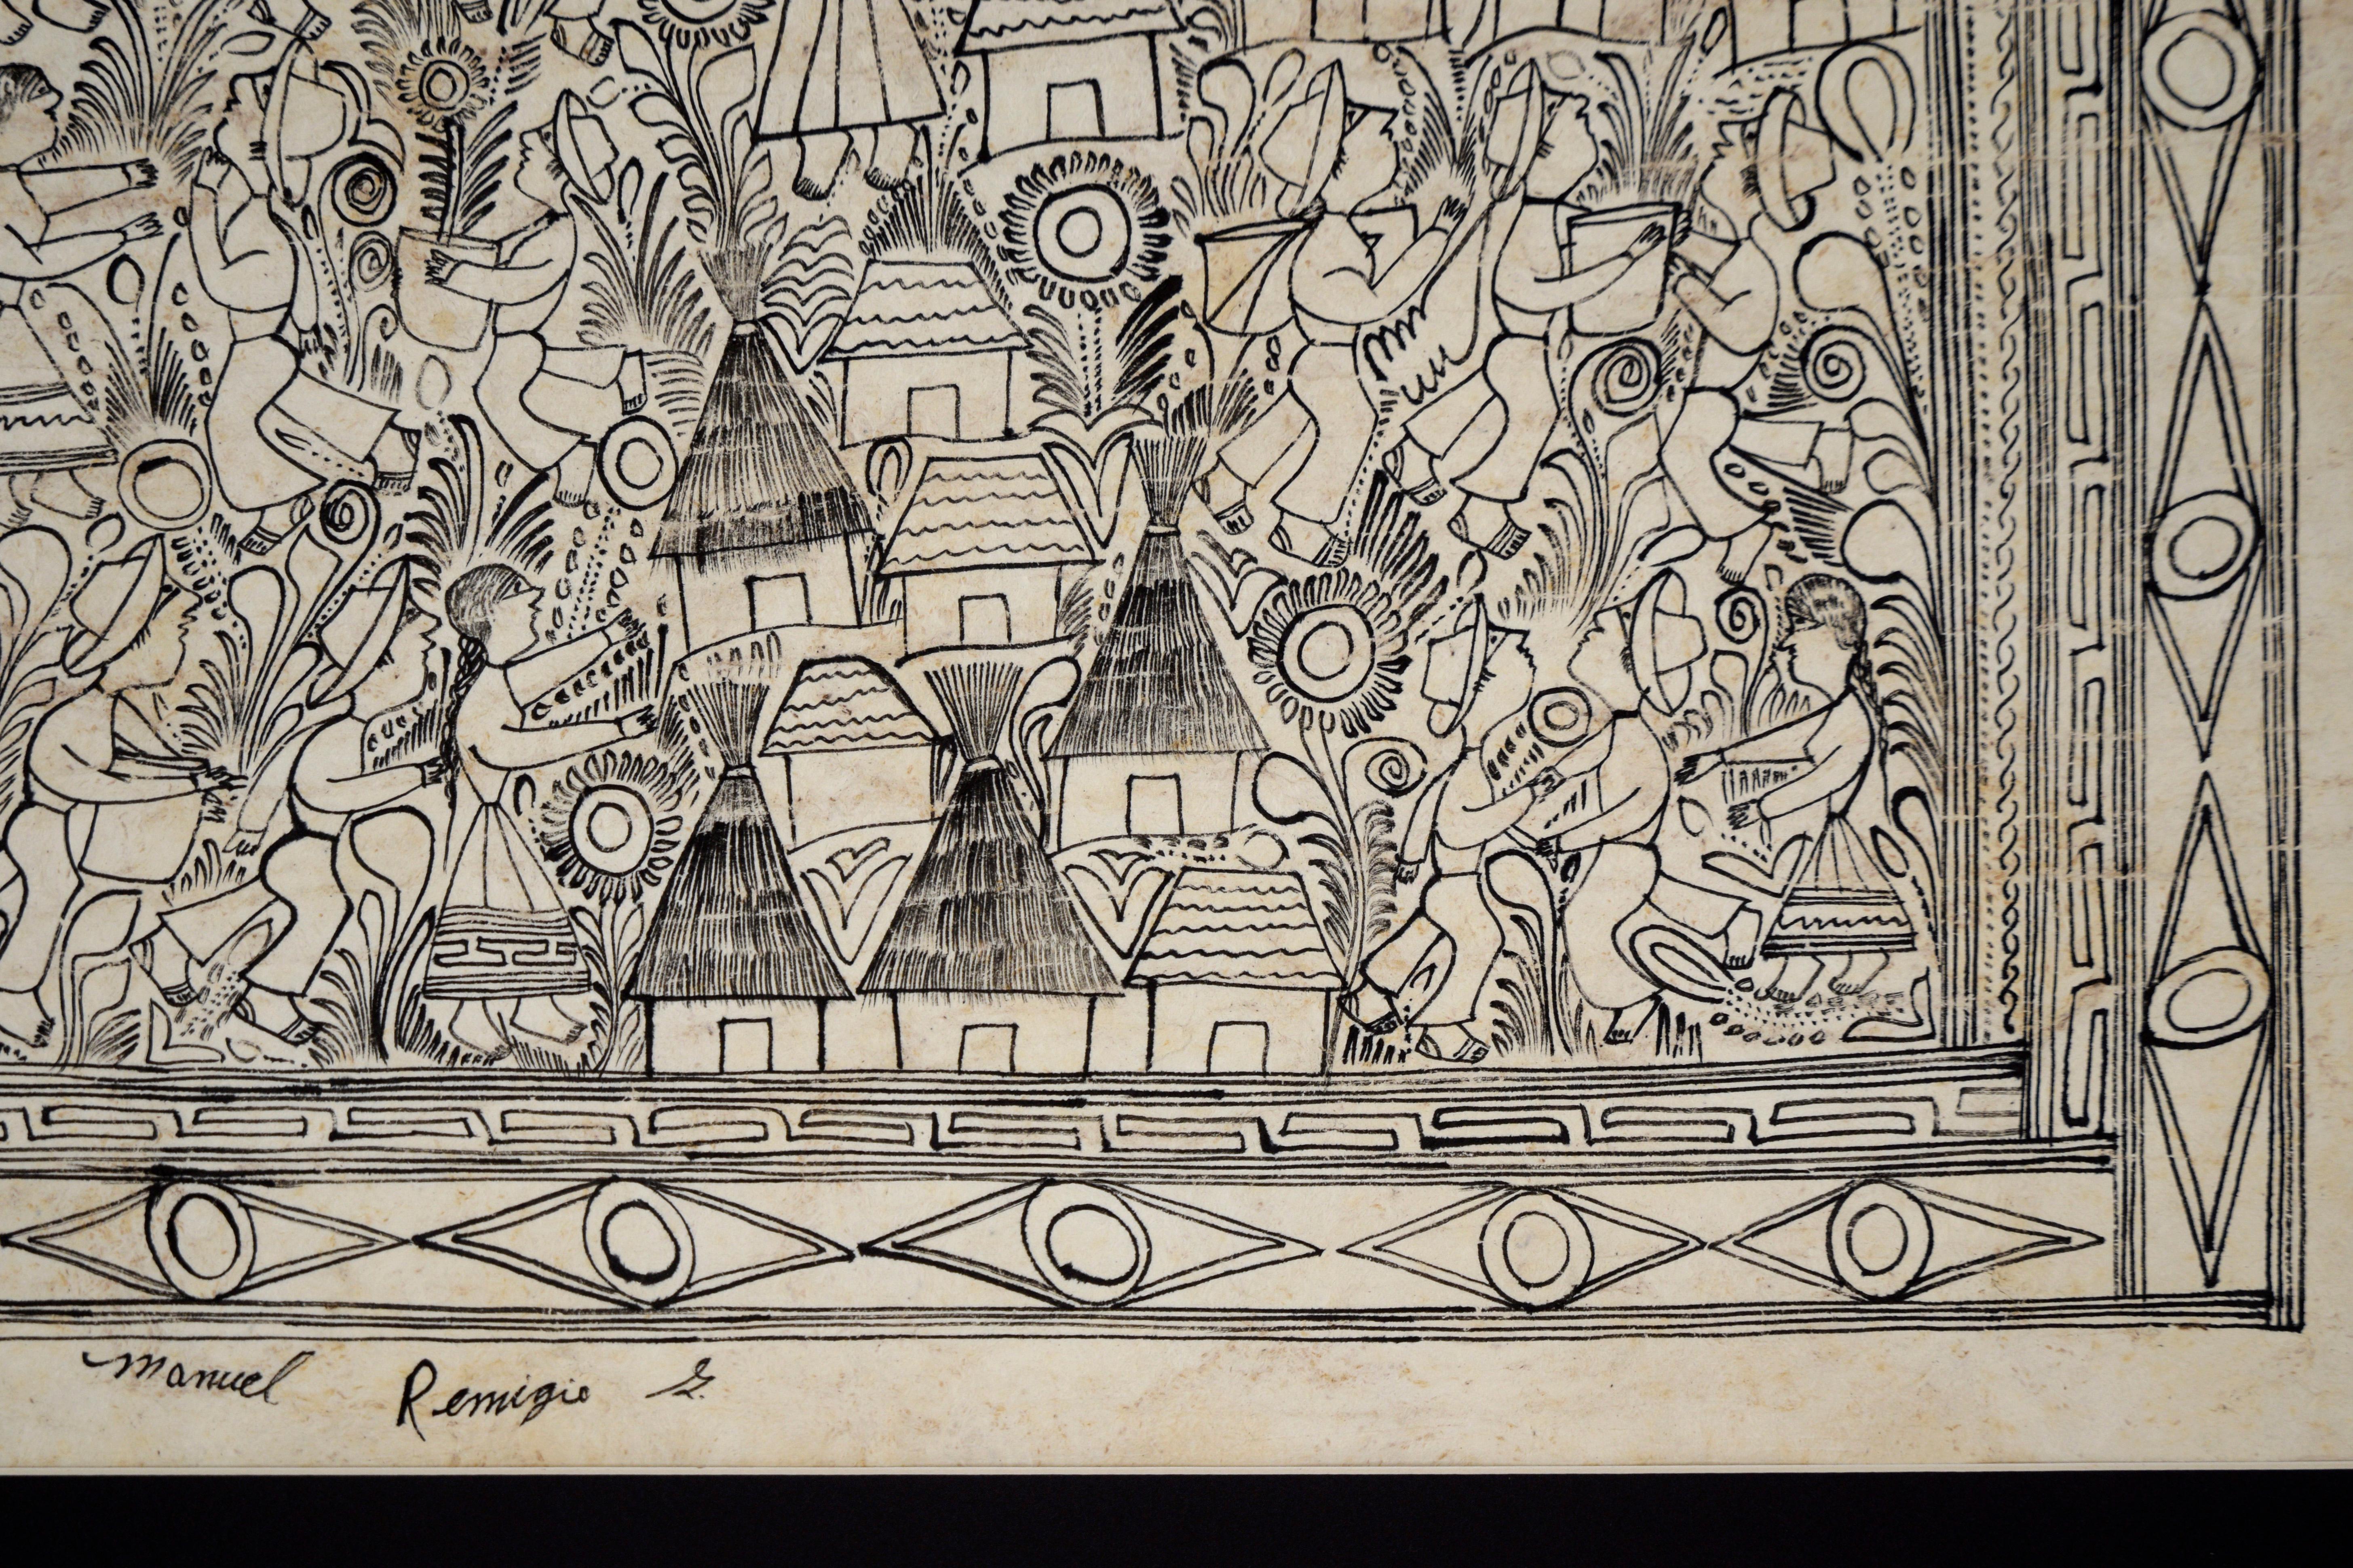 Manuel Remigio G.